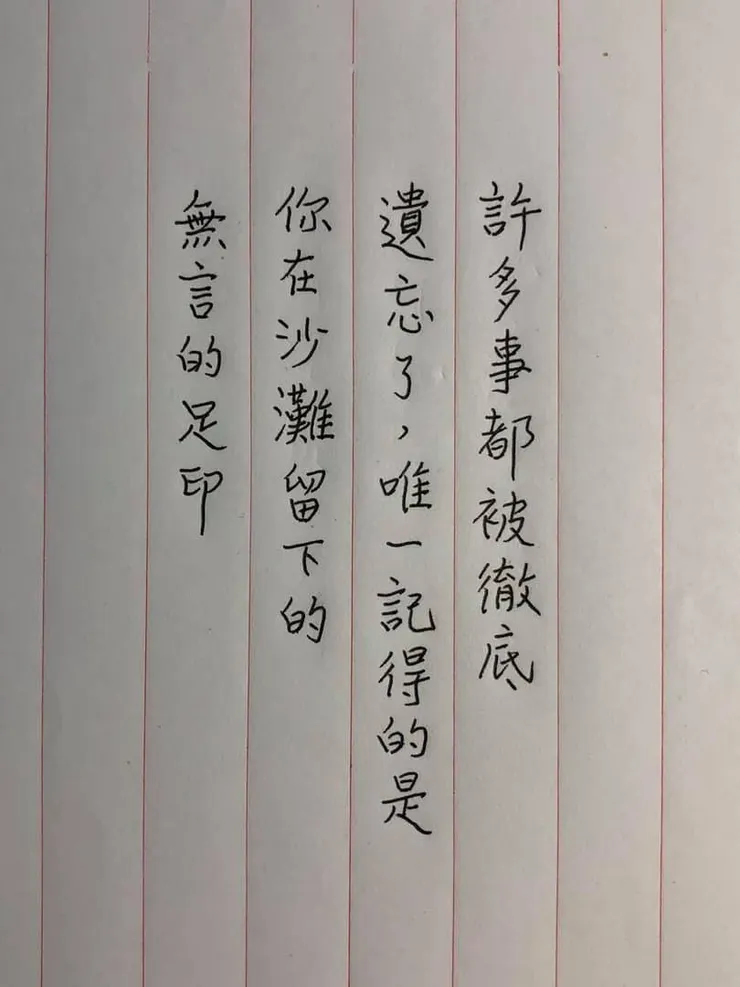 許多事都被徹底
遺忘了，唯一記得的是
你在沙灘留下的
無言的足印